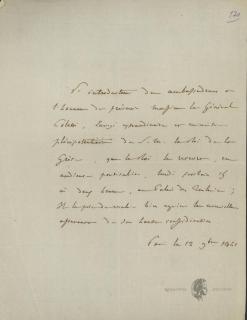 L'introducteur des ambassadeurs a
l'honneur de prévenir monsieur le Général
Coletti, Envoyé extraordinaire et ministre
plénipotentiaire de S. M. le Roi de la
Grèce, que le Roi le recevra, en
audience particulière, lundi prochain 15
à deux heures, au Palais des Tuileries;
Il le prie de vouloir bien agréer la nouvelle
assurance de sa haute considération
Paris le 12 9bre 1841